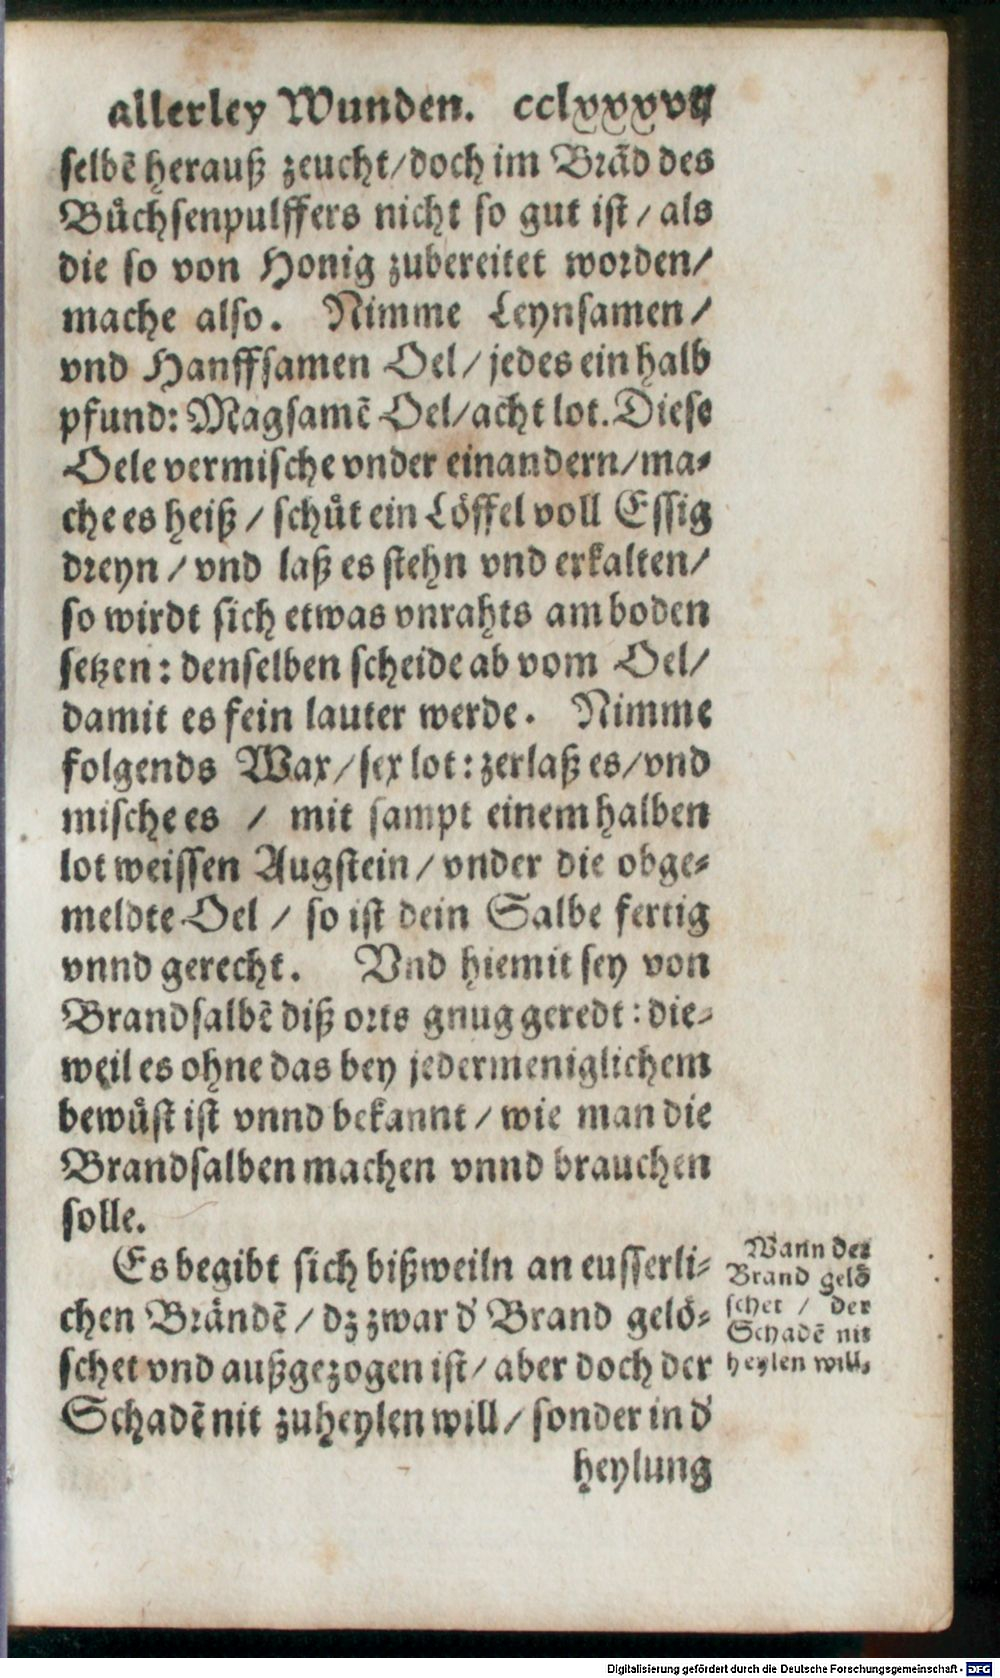 allerley Wunden. cclxxxvij
selbẽ herauß zeucht/doch im Brãd des
Bůchsenpulffers nicht so gut ist/als
die so von Honig zubereitet worden/
mache also. Nimme Leynsamen/
vnd Hanffsamen Oel/jedes ein halb
pfund: Magsamẽ Oel/acht lot. Diese
Oele vermische vnder einandern/ma-
che es heiß/schůt ein Löffel voll Essig
dreyn/vnd laß es stehn vnd erkalten/
so wirdt sich etwas vnrahts am boden
setzen: denselben scheide ab vom Oel/
damit es fein lauter werde. Nimme
folgends Wax/sex lot: zerlaß es/vnd
mische es / mit sampt einem halben
lot weissen Augstein/vnder die obge-
meldte Oel/so ist dein Salbe fertig
vnnd gerecht. Vnd hiemit sey von
Brandsalbẽ diß orts gnug geredt: die-
weil es ohne das bey jedermeniglichem
bewůst ist vnnd bekannt/wie man die
Brandsalben machen vnnd brauchen
solle.
Es begibt sich bißweiln an eusserli-
chen Brändẽ/dz zwar d' Brand gelö-
schet vnd außgezogen ist/aber doch der
Schadẽ nit zuheylen will/sonder in d'
heylung
Wann der
Brand gelö
schet / der
Schadẽ nit
heylen will,
Digitalisierung gefördert durch die Deutsche Forschungsgemeinschaft - DFG